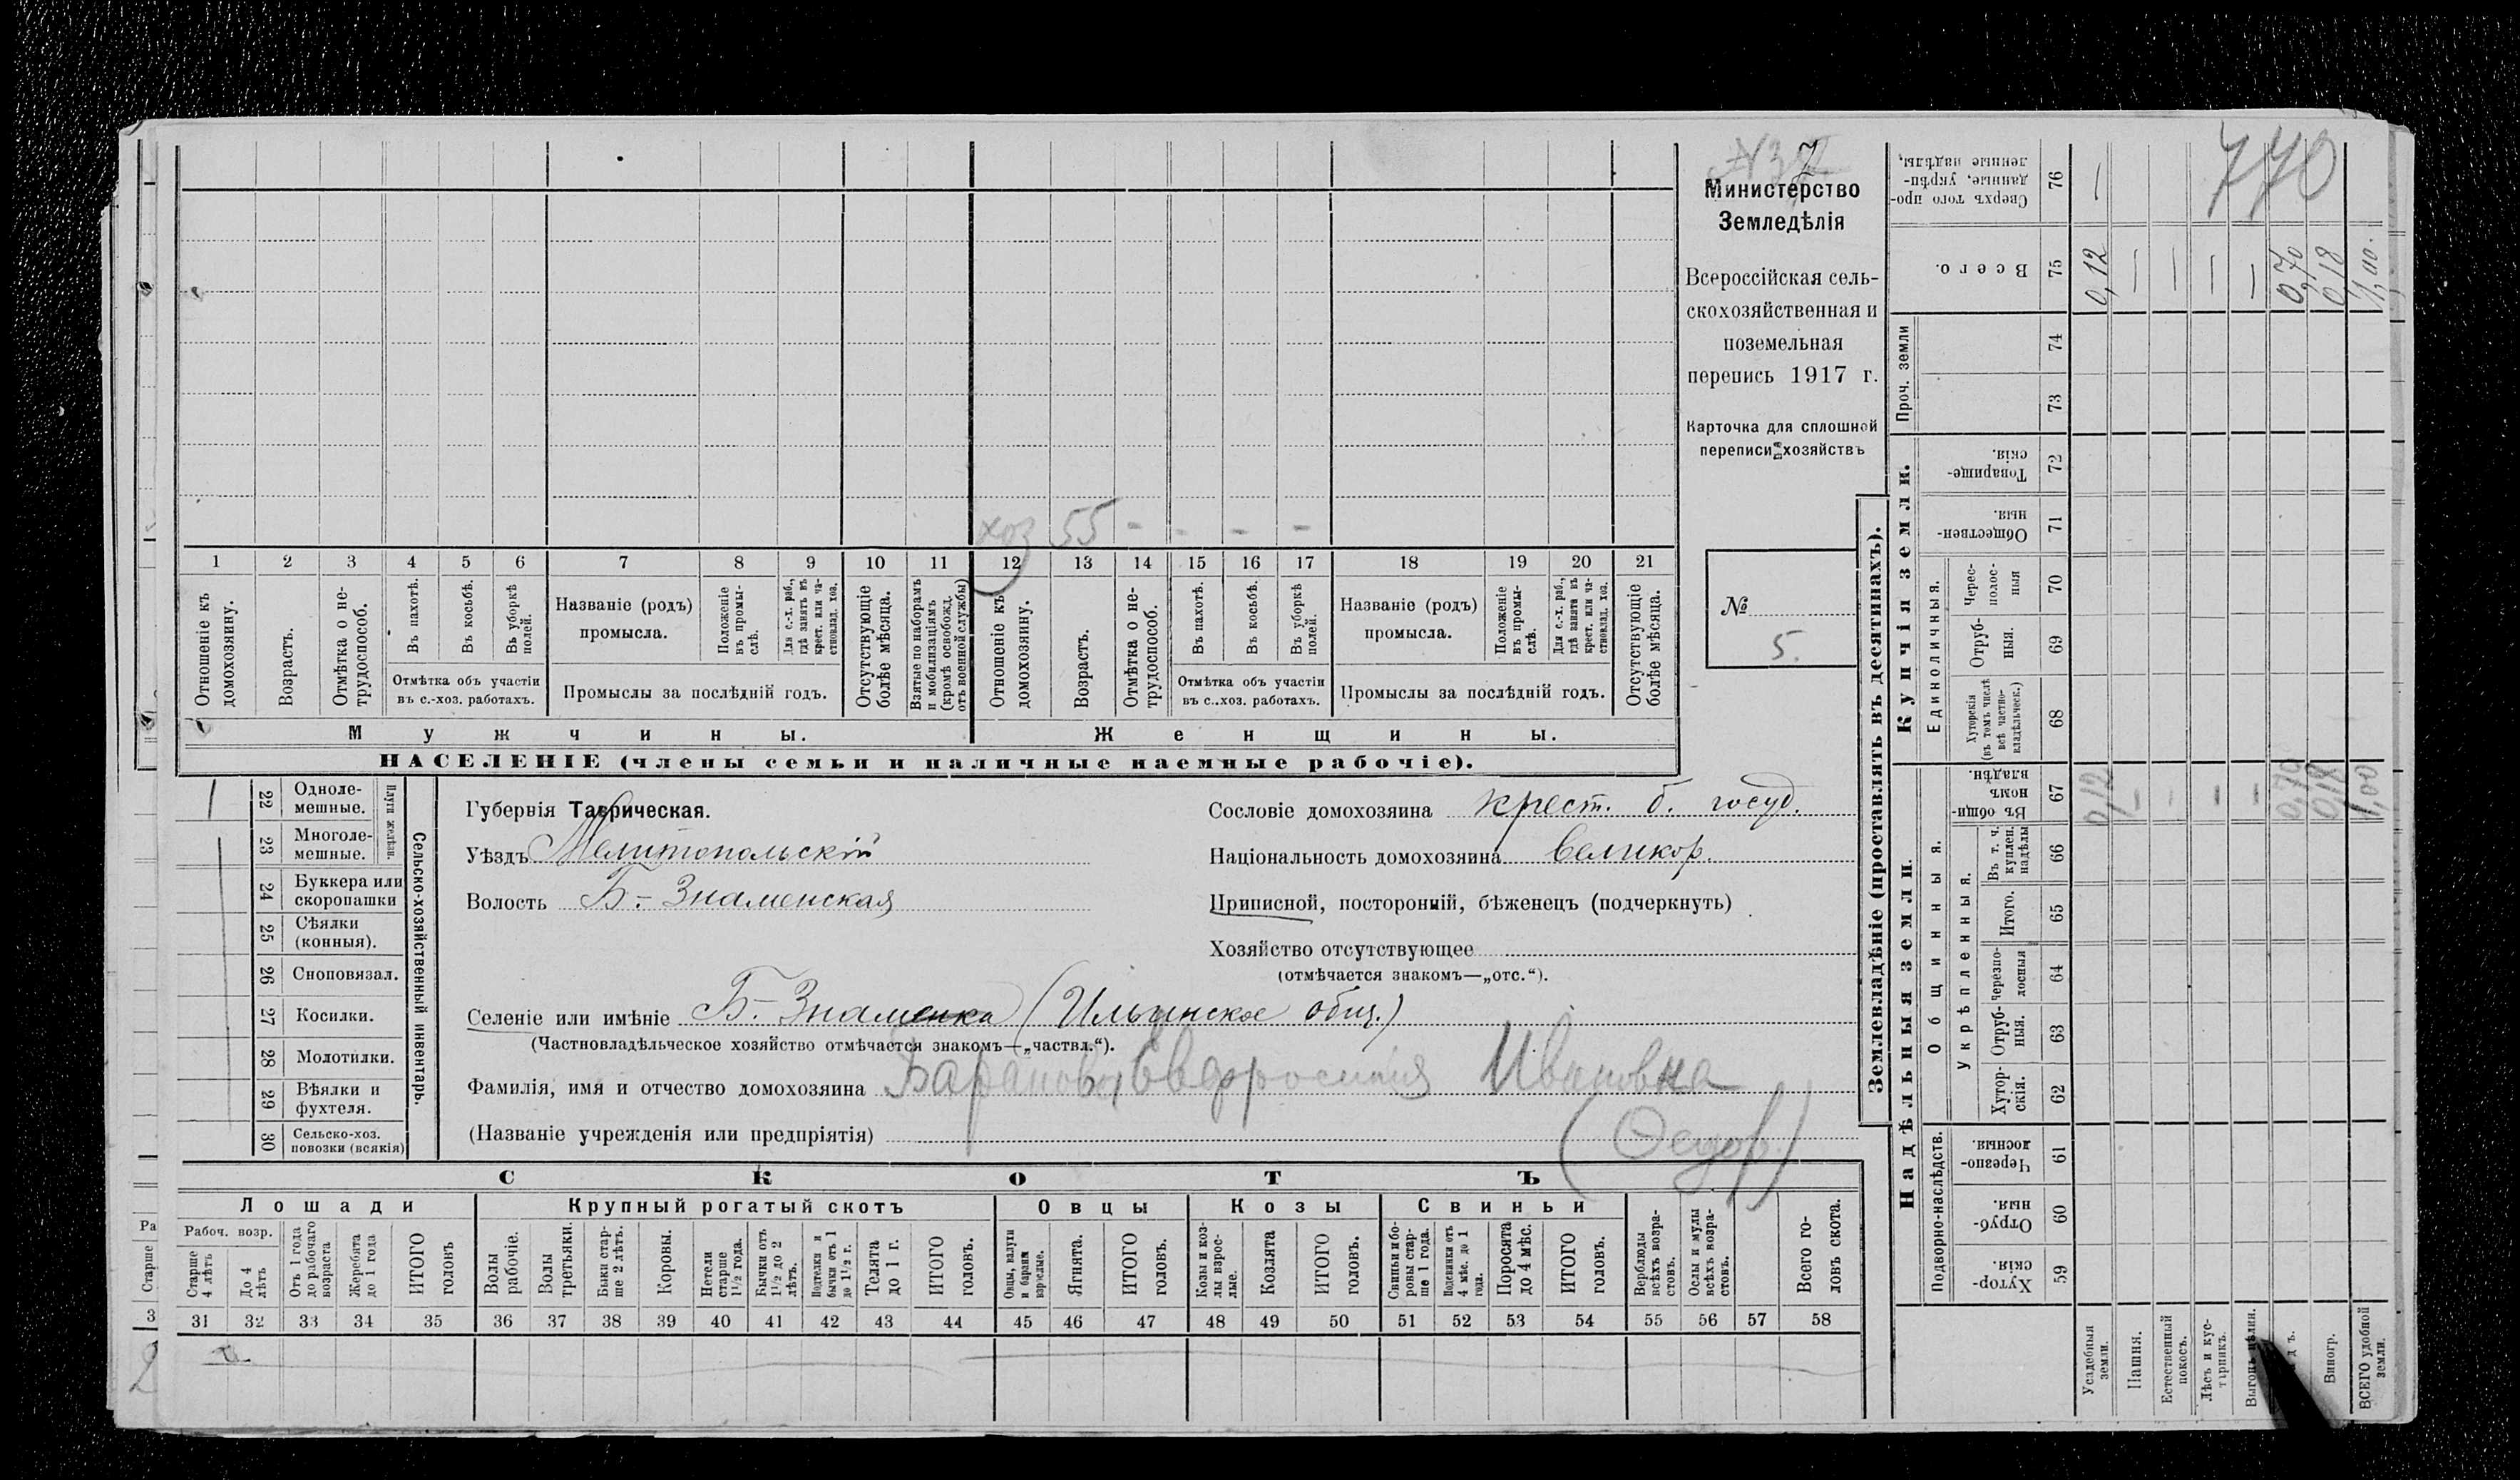 770
Министерство
Земледѣлія
Всероссійская сель-
скохозяйственная и
поземельная
перепись 1917 г.
Карточка для сплошной
переписи хозяйствъ
№
5.
хоз 55 - - - -
1 2 3 4 5 6 7 8 9 10 11 12 13 14 15 16 17 18 19 20 21
Отношеніе къ домохозяину.
Возрастъ.
Отмѣтка о не-трудоспособ.
Въ пахотѣ.
Въ косьбѣ.
Въ уборкѣ полей.
Отмѣтка объ участіи
въ с.-хоз. работахъ.
Названіе (родъ)
промысла.
Положеніе въ промы-слѣ.
Для с.-х. раб., гдѣ занятъ въ крест. или ча-стновлад. хоз.
Промыслы за послѣдній годъ.
Отсутствующіе болѣе мѣсяца.
Взятые по наборамъ и мобилизаціямъ (кромѣ освобожд. отъ военной службы)
Отношеніе къ домохозяину.
Возрастъ.
Отмѣтка о не-трудоспособ.
Въ пахотѣ.
Въ косьбѣ.
Въ уборкѣ полей.
Отмѣтка объ участіи
въ с.-хоз. работахъ.
Названіе (родъ)
промысла.
Положеніе въ промы-слѣ.
Для с.-х. раб., гдѣ занята въ крест. или ча-стновлад. хоз.
Промыслы за послѣдній годъ.
Отсутствующіе болѣе мѣсяца.
Мужчины.
Женщины.
НАСЕЛЕНІЕ (члены семьи и наличные наемные рабочіе).
Сельско-хозяйственный инвентарь.
Плуги желѣзн.
22 Одноле-мешные.
23 Многоле-мешные.
24 Буккера или скоропашки
25 Сѣялки (конныя).
26 Сноповязал.
27 Косилки.
28 Молотилки.
29 Вѣялки и фухтеля.
30 Сельско-хоз. повозки (всякія)
Губернія Таврическая.
Уѣздъ Мелитопольскій
Волость Б.-Знаменская
Сословіе домохозяина крест. б. госуд.
Національность домохозяина великор.
Приписной, посторонній, бѣженецъ (подчеркнуть)
Хозяйство отсутствующее
(отмѣчается знакомъ—„отс.“).
Селеніе или имѣніе Б.-Знаменка (Ильинское общ.)
(Частновладѣльческое хозяйство отмѣчается знакомъ—„частвл.“).
Фамилія, имя и отчество домохозяина Баранова Евфросинія Ивановна
(Названіе учрежденія или предпріятія) (Федор.)
СКОТЪ
Лошади
Крупный рогатый скотъ
Овцы
Козы
Свиньи
Рабоч. возр.
Старше 4 лѣтъ
До 4 лѣтъ
Отъ 1 года до рабочаго возраста
Жеребята до 1 года
ИТОГО головъ
Волы рабочіе.
Волы третьяки.
Быки стар-ше 2 лѣтъ.
Коровы.
Нетели старше 1½ года.
Бычки отъ 1½ до 2 лѣтъ.
Подтелки и бычки отъ 1 до 1½ г.
Телята до 1 г.
ИТОГО головъ.
Овцы, валухи и бараны взрослые.
Ягнята.
ИТОГО головъ.
Козы и коз-лы взрос-лые.
Козлята
ИТОГО головъ.
Свиньи и бо-ровы стар-ше 1 года.
Подсвинки отъ 4 мѣс. до 1 года.
Поросята до 4 мѣс.
ИТОГО головъ.
Верблюды всѣхъ возра-стовъ.
Ослы и мулы всѣхъ возра-стовъ.
Всего го-ловъ скота.
31 32 33 34 35 36 37 38 39 40 41 42 43 44 45 46 47 48 49 50 51 52 53 54 55 56 57 58
Ра
Старше
3
Землевладѣніе (проставлять въ десятинахъ).
Надѣльныя земли.
Купчія земли.
Проч. земли
Подворно-наслѣдств.
Общинныя.
Укрѣпленныя.
Единоличныя.
Хутор-скія. 59
Отруб-ныя. 60
Черезпо-лосныя 61
Хутор-скія. 62
Отруб-ныя. 63
Черезпо-лосныя 64
Итого. 65
Въ т. ч. куплен. надѣлы 66
Въ общи-номъ владѣн. 67
Хуторскія (въ томъ числѣ всѣ частно-владѣльческ.) 68
Отруб-ныя. 69
Черес-полос-ныя 70
Обществен-ныя. 71
Товарище-скія. 72
73
74
Всего. 75
Сверхъ того про-данные, укрѣп-ленные надѣлы, 76
Усадебныя земли. 0,12 0,12 —
Пашня. — —
Естественный покосъ. — —
Лѣсъ и кус-тарникъ. — —
— —
0,70 0,70
Виногр. 0,18 0,18
ВСЕГО удобной земли. 1,00 1,00.